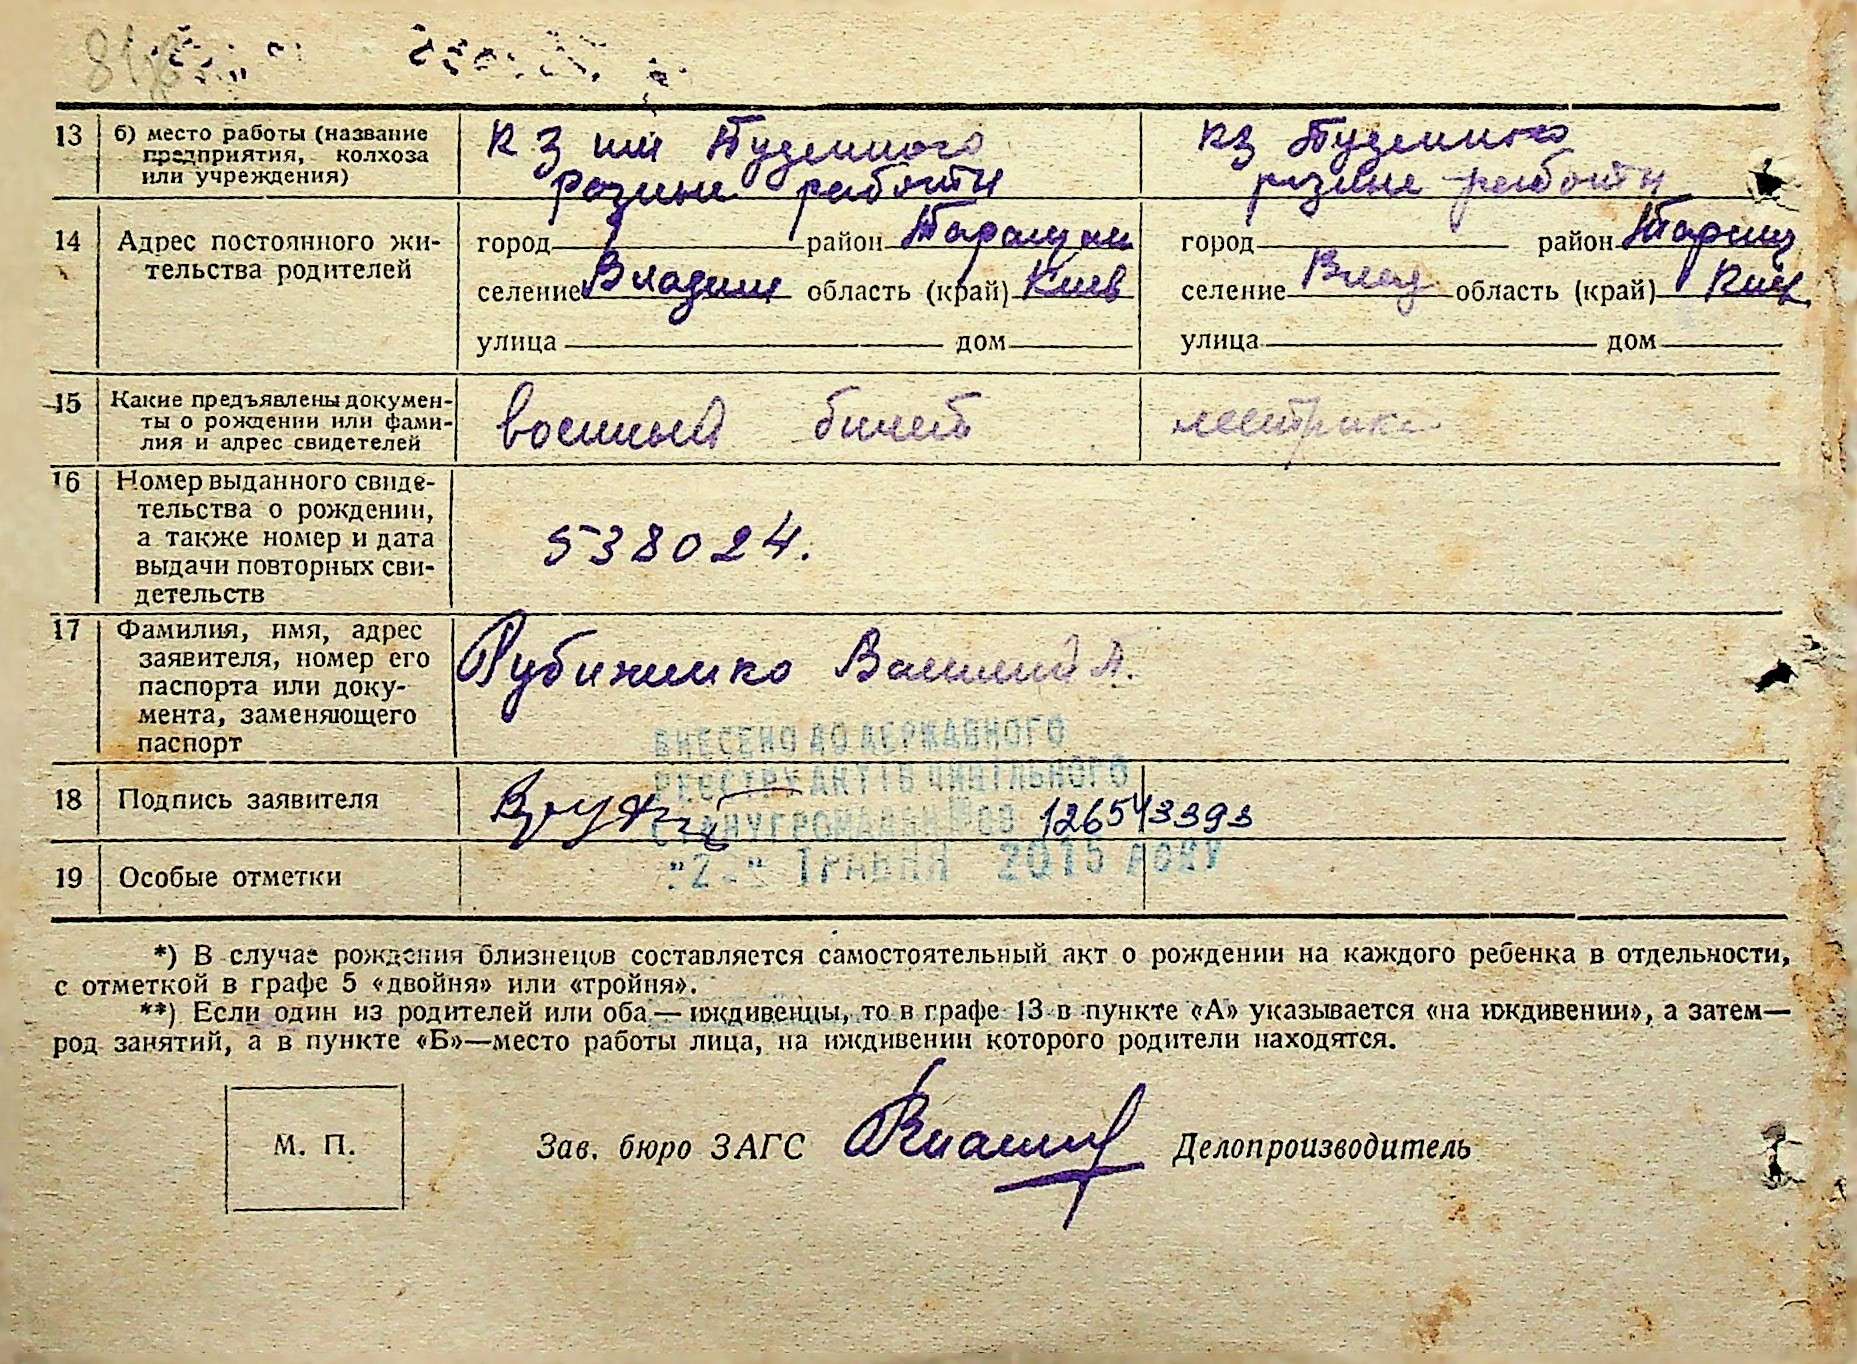 13 б) место работы (название предприятия, колхоза или учреждения)
КЗ им Буденного
разные работы
КЗ Буденного
разные работы
14 Адрес постоянного жительства родителей
город район Таращан
селение Владим область (край) Киев
улица дом
город район Таращ
селение Влад область (край) Киев
улица дом
15 Какие предъявлены документы о рождении или фамилия и адрес свидетелей
военный билет
метрика
16 Номер выданного свидетельства о рождении, а также номер и дата выдачи повторных свидетельств
538024.
17 Фамилия, имя, адрес заявителя, номер его паспорта или документа, заменяющего паспорт
Рубиженко Василий А.
ВНЕСЕНО ДО ДЕРЖАВНОГО
РЕЄСТРУ АКТІВ ЦИВІЛЬНОГО
СТАНУ ГРОМАДЯН 126543393
ТРАВНЯ 2015 РОКУ
18 Подпись заявителя
19 Особые отметки
*) В случае рождения близнецов составляется самостоятельный акт о рождении на каждого ребенка в отдельности,
с отметкой в графе 5 «двойня» или «тройня».
**) Если один из родителей или оба — иждивенцы, то в графе 13 в пункте «А» указывается «на иждивении», а затем—
род занятий, а в пункте «Б»—место работы лица, на иждивении которого родители находятся.
М. П.
Зав. бюро ЗАГС
Делопроизводитель